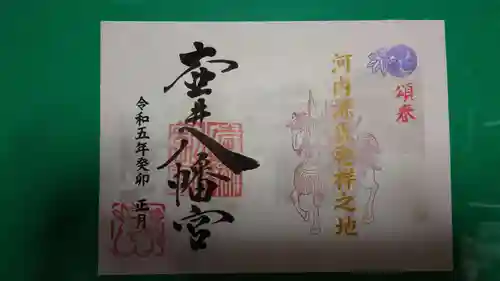 頌春
河内源氏発祥之地
壺井八幡宮
令和五年癸卯 正月